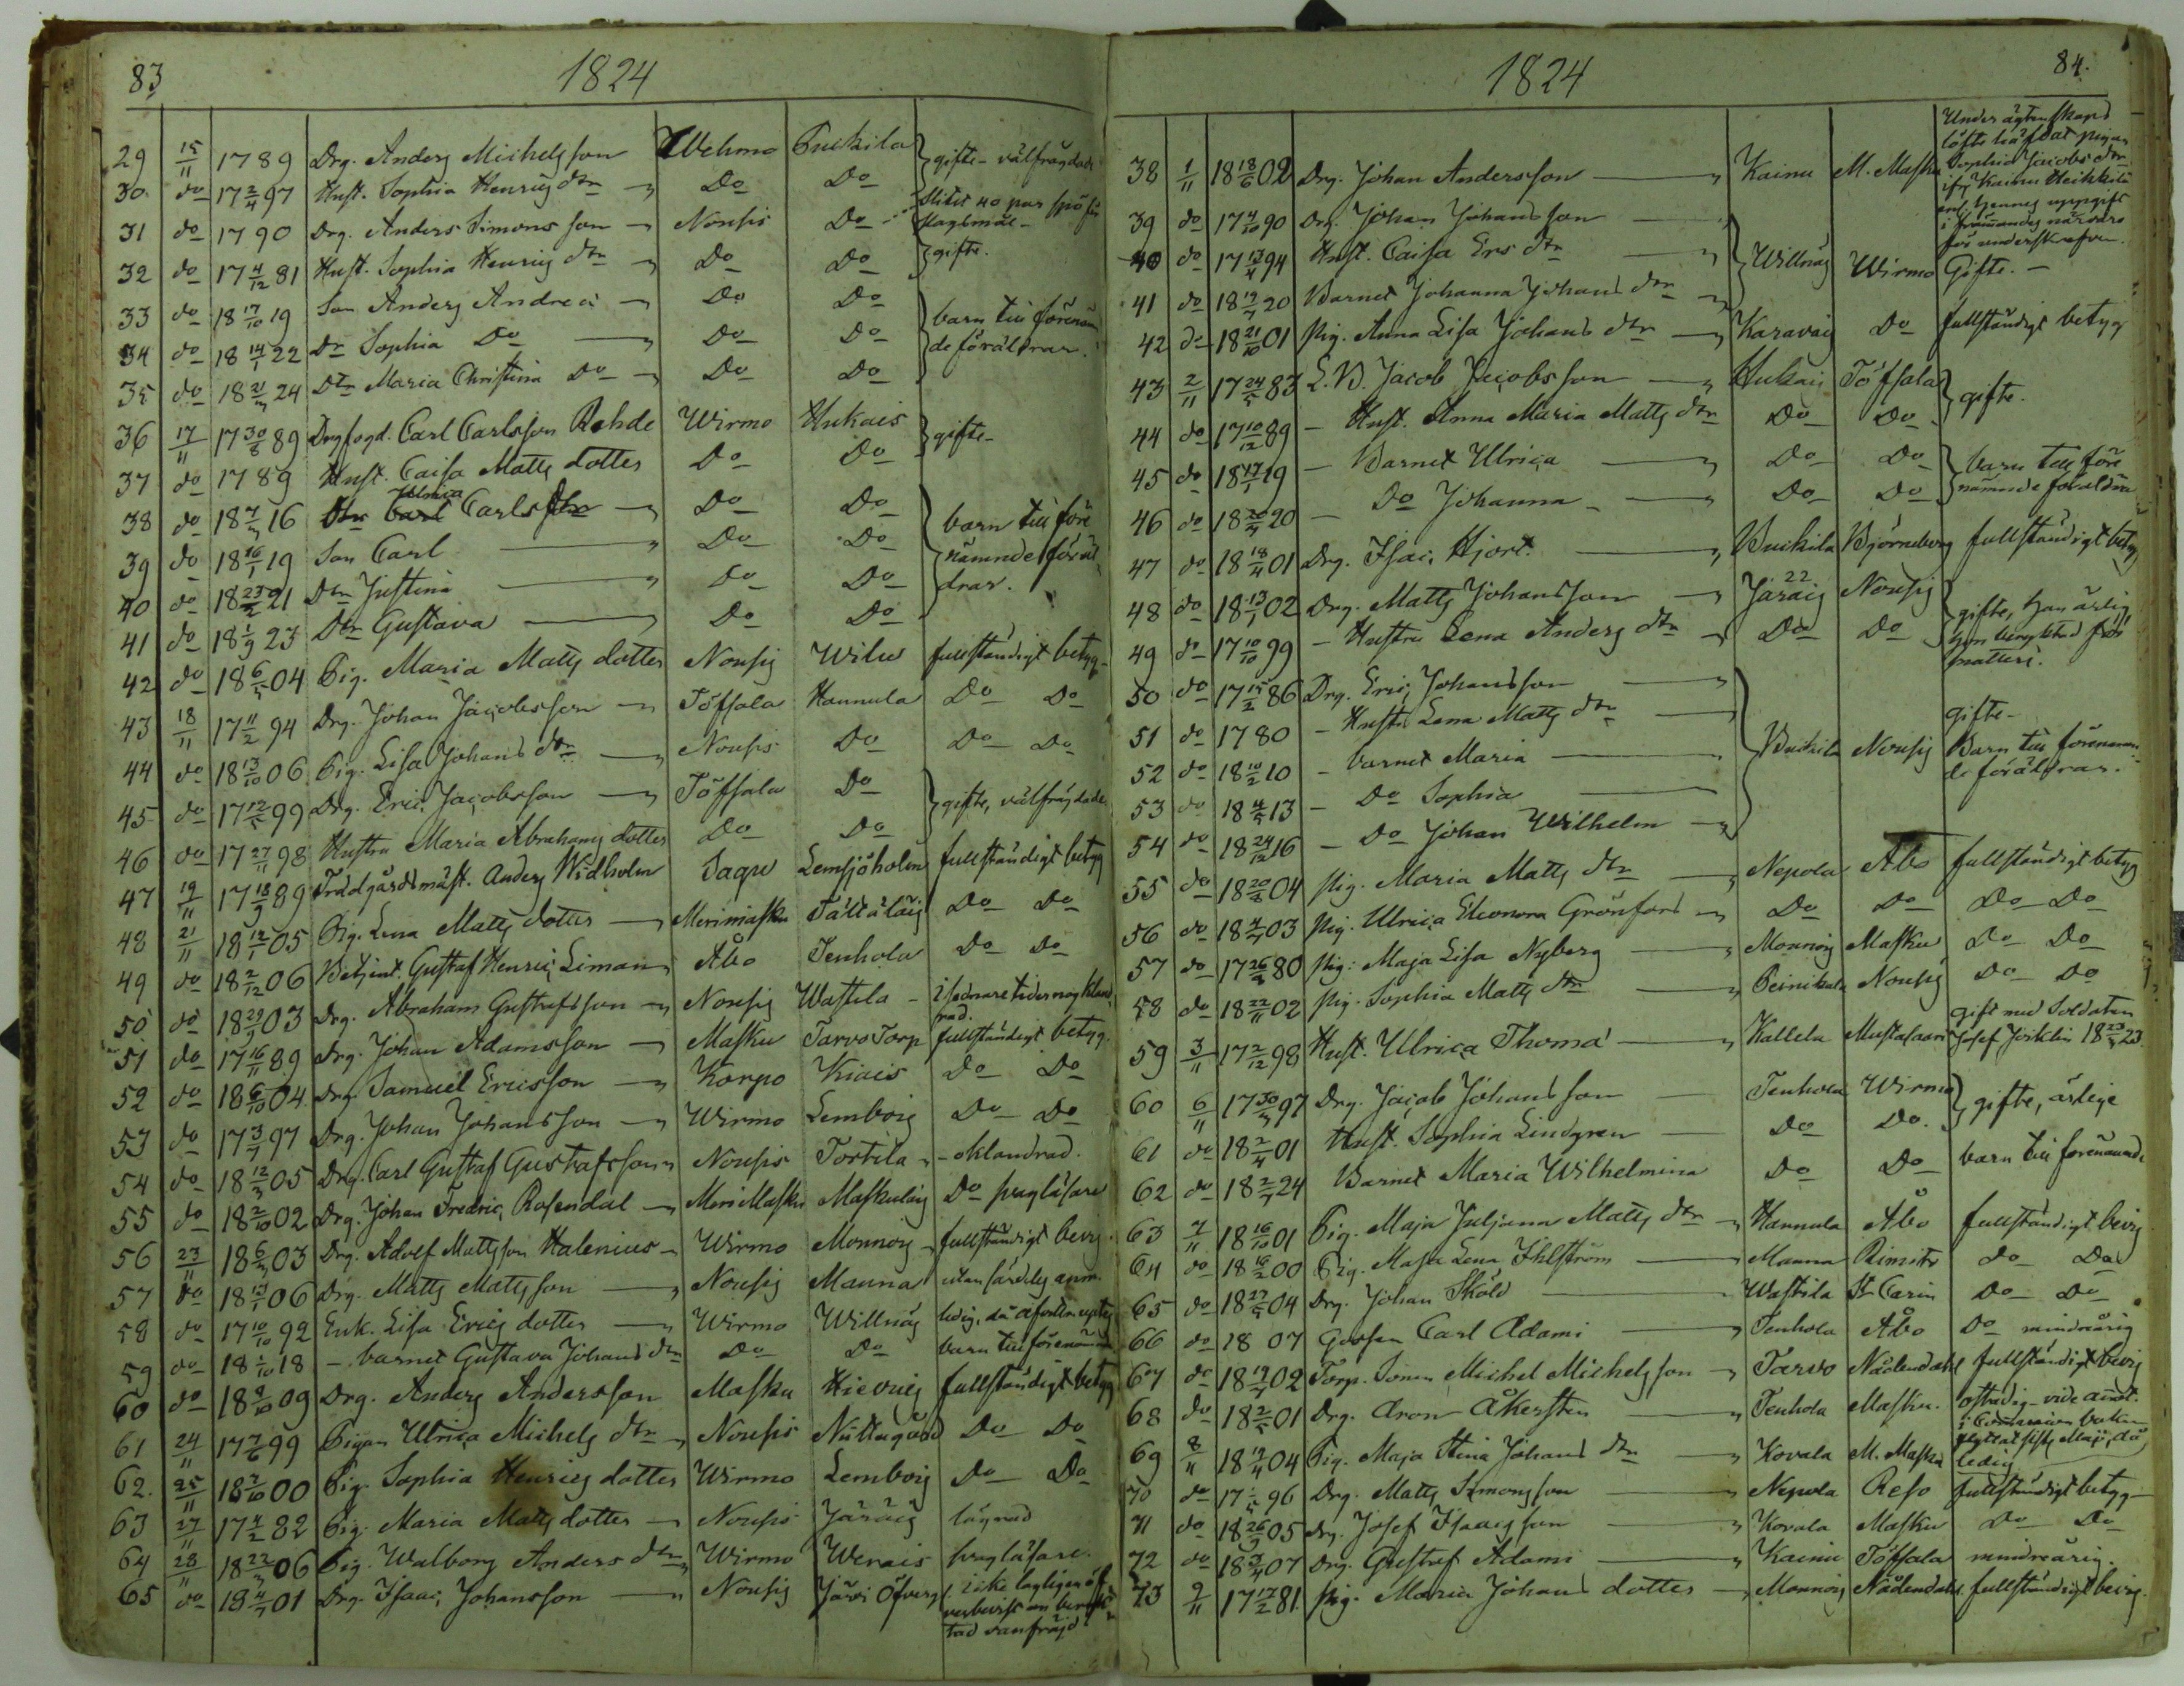 83
1824
29 15/11 1789 Drg. Anders Michelsson Wehmo Puckila gifte - välfrägdade
30. do 17 2/4 97 Hust. Sophia Henrics dtr Do Do
31 do 1790 Drg. Anders Simonsson Nousis Do Slitit 40 par spö för
slagsmål
32 do 17 4/12 81 Hust. Sophia Henrics dtr Do Do gifte.
33 do 18 17/10 19 Son Anders Andreæ Do Do barn till förenämn
34 do 18 14/1 22 Dr Sophia Do Do Do de föräldrar.
35 do 18 21/3 24 Dtr Maria Christina Do Do Do
36 17/11 17 30/8 89 Drgfogd. Carl Carlsson Rohde Wirmo Hukais gifte
37 do 1789 Hust. Caisa Matts dotter Do Do
38 do 18 7/3 16 Dtr Ulrica Carls dtr Do Do barn till före
39 do 18 16/1 19 Son Carl Do Do nämnde föräl
40 do 18 23/2 21 Dtr Justina Do Do drar.
41 do 18 1/9 23 Dtr Gustava Do Do
42 do 18 6/5 04 Pig. Maria Matts dotter Nousis Wilu fullständigt betyg
43 18/11 17 11/2 94 Drg. Johan Jacobsson Töfsala Hannula Do Do
44 do 18 13/10 06 Pig. Lisa Johans dtr Nousis Do Do Do
45 do 17 12/5 99 Drg. Eric Jacobsson Töfsala Do gifte, välfrägdade
46 do 17 27/11 98 Hustru Maria Abrahams dotter Do Do
47 19/11 17 18/9 89 Trädgårdsmäst. Anders Widholm Sagu Lemsjöholm fullständigt betyg
48 21/11 18 12/1 05 Pig. Lena Matts dotter Merimasku Do Do
49 do 18 2/12 06 Betjent. Gustaf Henric Liman Åbo Tenhola Do Do
50 do 18 29/9 03 Drg. Abraham Gustafsson Nousis Wastila i sednare tider nog kland
rad.
51 do 17 16/11 89 Drg. Johan Adamsson Masku Tarvo Torp fullständigt betyg.
52 do 18 6/10 04 Drg Samuel Ericsson Korpo Kiais Do Do
53 do 17 3/7 97 Drg. Johan Johansson Wirmo Lembois Do Do
54 do 18 12/3 05 Drg. Carl Gustaf Gustafsson Nousis Tortila - oklandrad.
55 do 18 2/10 02 Drg. Johan Fredric Rosendal MeriMasku Maskulais Do svag läsare
56 23/11 18 6/3 03 Drg. Adolf Mattsson Halenius Wirmo Monnois fullständigt bevis
57 do 18 13/1 06 Drg. Matts Mattsson Nousis Mauna utan särdeles anm.
58 do 17 10/10 92 Enk. Lisa Erics dotter Wirmo Willnäs ledig,
59 do 18 1/10 18 - barnet Gustava Johans dtr Do Do barn till förenämnde
60 do 18 8/10 09 Drg. Anders Andersson Masku Hievais fullständigt betyg
61 24/11 17 7/6 99 Pigan Ulrica Michels dtr Nousis Nuttugård Do Do
62. 25/11 18 7/10 00 Pig. Sophia Henrics dotter Wirmo Lembois Do Do
63 27/11 17 4/2 82 Pig. Maria Matts dotter Nousis Järäis lägrad
64 28/11 18 22/3 06 Pig. Walborg Anders dtr Wirmo Werais svag läsare.
65 do 18 4/7 01 Drg. Isaac Johansson Nousis Järvi Öfverg icke lagligen öf
verbevist om beryk
tad vanfräjd
84.
1824
Under ägtenskaps
löfte häfdat pigan
38 1/11 18 18/6 02 Drg. Johan Andersson Kainu M. Masku Sophia Jacobs dtr
ifr. Kainu Heikkilä
enl. hennes uppgift
i främandes närvaro
för underskrefven.
39 do 17 4/10 90 Drg. Johan Johansson
40 do 17 13/4 94 Hust. Caisa Ers dtr Willnäs Wirmo Gifte. -
41 do 18 19/7 20 Barnet Johanna Johans dtr
42 do 18 21/10 01 Pig. Anna Lisa Johans dtr Karavais Do fullständigt betyg
43 2/11 17 24/5 83 L.B. Jacob Jacobsson Hukais Töfsala gifte.
44 do 17 10/12 89 - Hust. Anna Maria Matts dtr Do Do
45 do 18 17/1 19 - Barnet Ulrica Do Do barn till före
46 do 18 20/4 20 - Do Johanna Do Do nämnde föräldrar
47 do 18 18/4 01 Drg. Isac Hjort. Buckila Björneborg fullständigt betyg
48 do 18 13/1 02 Drg. Matts Johansson 22 Järäis Nousis gifte, han ärlig
49 do 17 10/10 99 - Hustru Lena Anders dtr Do Do hon beryktad för
snatteri.
50 do 17 15/2 86 Drg. Eric Johansson
51 do 1780 - Hustr. Lena Matts dtr gifte
52 do 18 10/2 10 - barnet Maria Buckila Nousis Barn till förenämn
53 do 18 4/5 13 - Do Sophia de föräldrar.
54 do 18 24/12 16 - Do Johan Wilhelm
55 do 18 20/2 04 Pig. Maria Matts dtr Nepola Åbo fullständigt betyg
56 do 18 4/7 03 Pig. Ulrica Eleonora Grönfors Do Do Do Do
57 do 17 26/3 80 Pig. Maja Lisa Nyberg Monnois Masku Do Do
58 do 18 22/11 02 Pig. Sophia Matts dtr Peinikala Nousis Do Do
gift med Soldaten
59 3/11 17 2/12 98 Hust. Ulrica Thomæ Kallela Mustasaari Josef 18 23/3 23.
60 6/11 17 30/3 97 Drg. Jacob Johansson Tenhola Wirmo gifte, ärlige
61 do 18 2/4 01 Hust. Sophia Lindgren Do Do.
62 do 18 2/7 24 Barnet Maria Wilhelmina Do Do barn till förenämnde
63 7/11 18 16/10 01 Pig. Maja Juljana Matts dtr Hannula Åbo fullständigt bevis
64 do 18 16/2 00 Pig. Maja Lena Ihlström Manna Rimito do Do
65 do 18 27/5 04 Drg. Johan Sköld Wastila St Carin Do Do
66 do 18 07 Gossen Carl Adami Tenhola Åbo Do minderårig
67 do 18 19/7 02 Torp. Sonen Michel Michelsson Tarvo Nådendahl fullständigt bevis
68 do 18 2/5 01 Drg. Aron Åkersten Tenhola Masku. ostadig - vide annot.
69 8/11 18 19/4 04 Pig. Maja Stina Johans dtr Kovala M. Masku ledig
70 do 17 1/5 96 Drg. Matts Simonsson Nepola Reso fullständigt betyg
71 do 18 26/9 05 Drg. Josef Isaacsson Kovala Masku Do Do
72 do 18 3/4 07 Drg. Gustaf Adami Kainu Töfsala minderårig.
73 9/11 17 17/2 81 Pig. Maria Johans dotter Monnois Nådendahl fullständigt bevis.